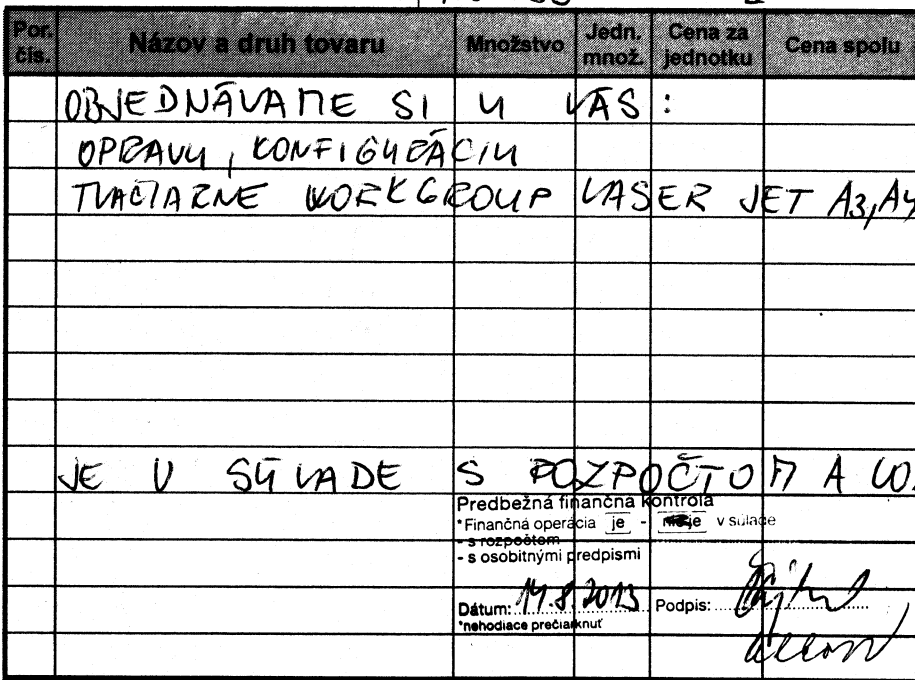 Por. čís. Názov a druh tovaru Množstvo Jedn. množ. Cena za jednotku Cena spolu
OBJEDNÁVAME SI U VÁS :
OPRAVU , KONFIGURÁCIU
TLAČIARNE WORKGROUP LASER JET A3,A4
JE V SÚLADE S ROZPOČTOM A
Predbežná finančná kontrola
*Finančná operácia je - nie je v súlade
- s rozpočtom
- s osobitnými predpismi
Dátum: 14.8.2013 Podpis:
*nehodiace prečiarknuť